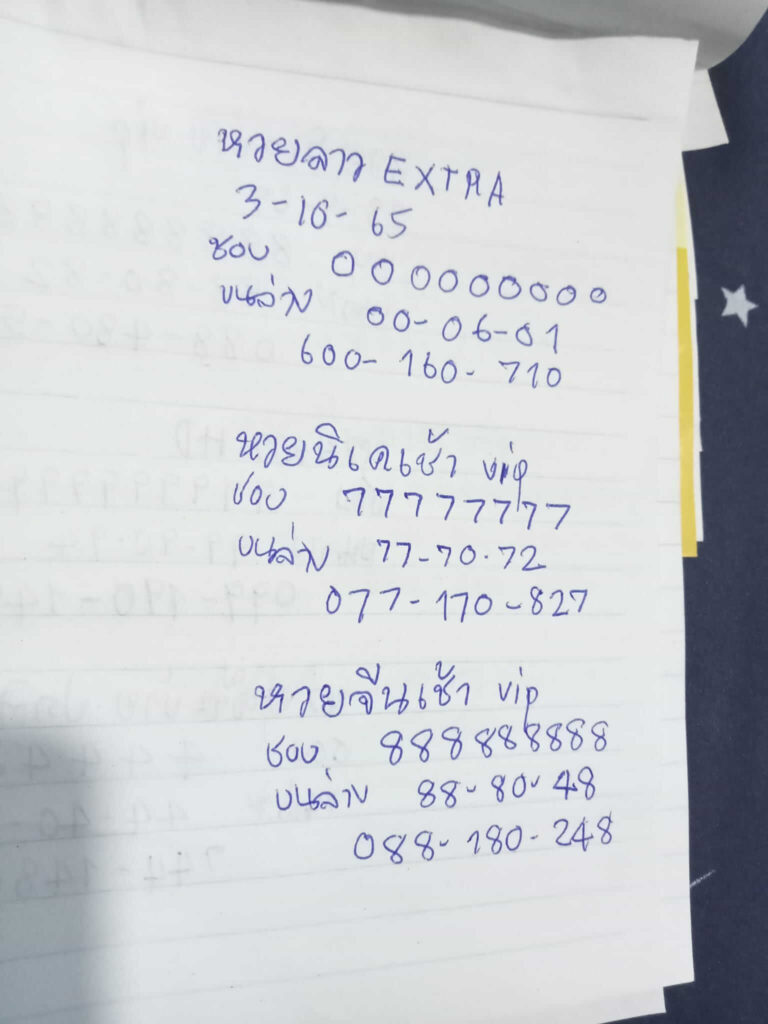 หวยลาว EXTRA
3-10-65
ชอบ 0000000000
บนล่าง 00-06-01
600-160-710
หวยนิเคเช้า vip
ชอบ 77777777
บนล่าง 77-70-72
077-170-827
หวยจีนเช้า vip
ชอบ 888888888
บนล่าง 88-80-48
088-180-248